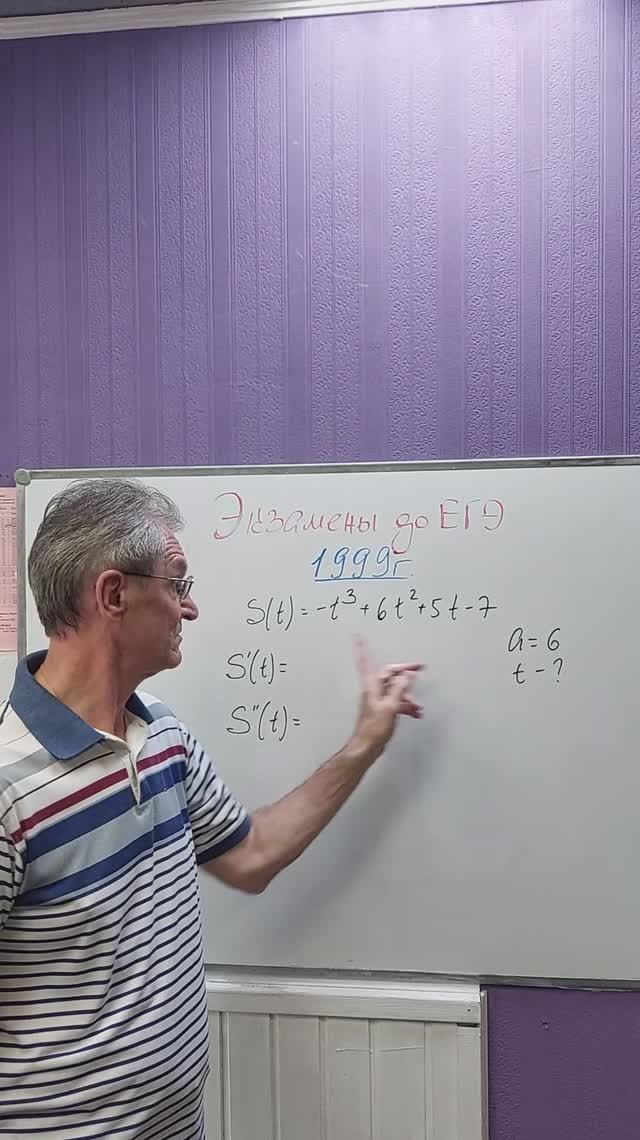 Экзамены до ЕГЭ
1999г.
S(t) = -t³ + 6t² + 5t - 7
a = 6
S'(t) =
t - ?
S''(t) =